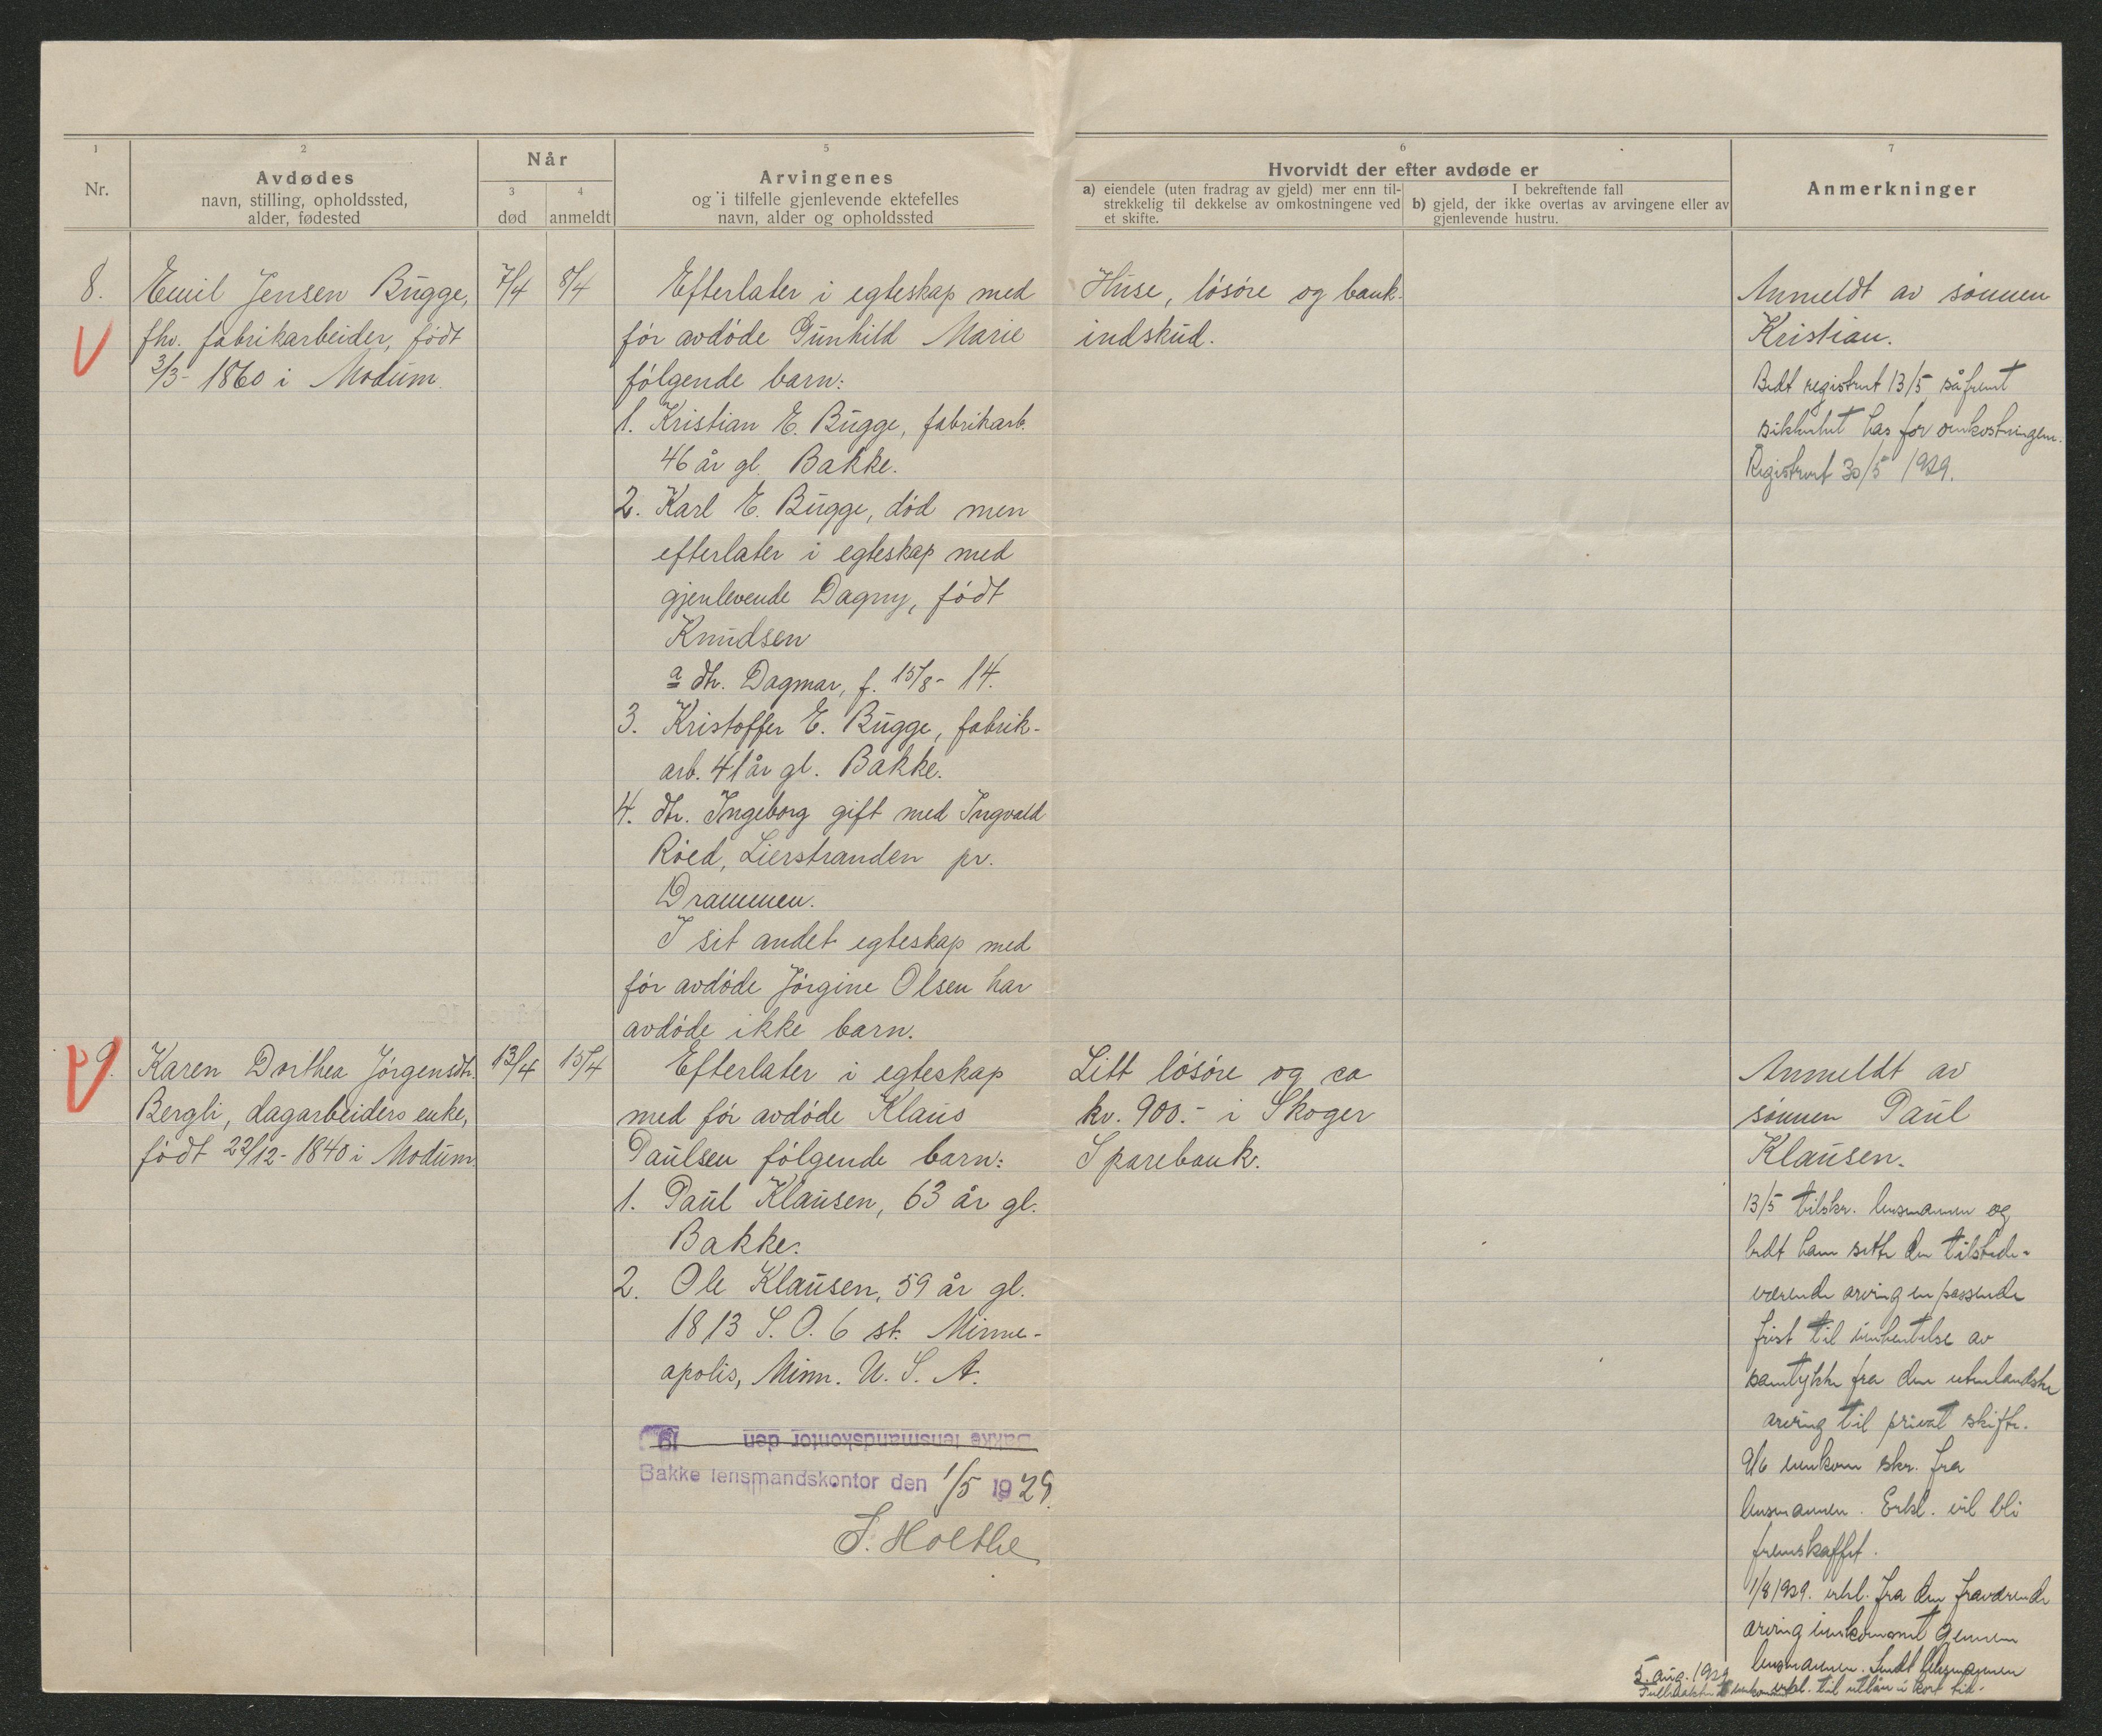 1
Nr.
2
Avdødes
navn, stilling, opholdssted,
alder, fødested
Når
3
død
4
anmeldt
5
Arvingenes
og i tilfelle gjenlevende ektefelles
navn, alder og opholdssted
6
Hvorvidt der efter avdøde er
a) eiendele (uten fradrag av gjeld) mer enn til-
strekkelig til dekkelse av omkostningene ved
et skifte.
I bekreftende fall
b) gjeld, der ikke overtas av arvingene eller av
gjenlevende hustru.
7
Anmerkninger
8.
Emil Jensen Bugge,
fhv. fabrikarbeider, født
3/3- 1860 i Modum.
7/4
8/4
Efterlater i egteskap med
før avdøde Gunhild Marie
følgende barn:
1. Kristian E. Bugge, fabrikarb.
46 år gl. Bakke.
2. Karl E. Bugge, død men
efterlater i egteskap med
gjenlevende Dagny, født
Knudsen
a dtr. Dagmar, f. 15/8- 14.
3. Kristoffer E. Bugge, fabrik-
arb. 41 år gl. Bakke.
4. dtr. Ingeborg gift med Ingvald
Røed, Lierstranden pr.
Drammen.
I sit andet egteskap med
før avdøde Jørgine Olsen har
avdøde ikke barn.
Huse, løsøre og bank-
indskud.
Anmeldt av sønnen
Kristian.
Bedt registrert 13/5 såfremt
sikkerhet has for omkostningene.
Registrert 30/5 1929.
9.
Karen Dorthea Jørgensdtr.
Bergli, dagarbeiders enke,
født 22/12- 1840 i Modum
13/4
15/4
Efterlater i egteskap
med før avdøde Klaus
Paulsen følgende barn:
1. Paul Klausen, 63 år gl.
Bakke.
2. Ole Klausen, 59 år gl.
1813 S. O. 6 st. Minne-
apolis, Minn. U. S. A.
Bakke lensmandskontor den 19
Bakke lensmandskontor den 1/5 1929.
S. Holthe
Litt løsøre og ca
kr. 900.- i Skoger
Sparebank.
Anmeldt av
sønnen Paul
Klausen.
13/5 tilskr. lensmannen og
bedt ham sette den tilstede-
værende arving en passende
frist til innhentelse av
samtykke fra den utenlandske
arving til privat skifte.
9/6 innkom skr. fra
lensmannen. Erkl. vil bli
fremskaffet.
1/8 1929. erkl. fra den fraværende
arving innkommet gjennem
lensmannen. Sendt lensmannen
5. aug. 1929
erkl. til utlån i kort tid.